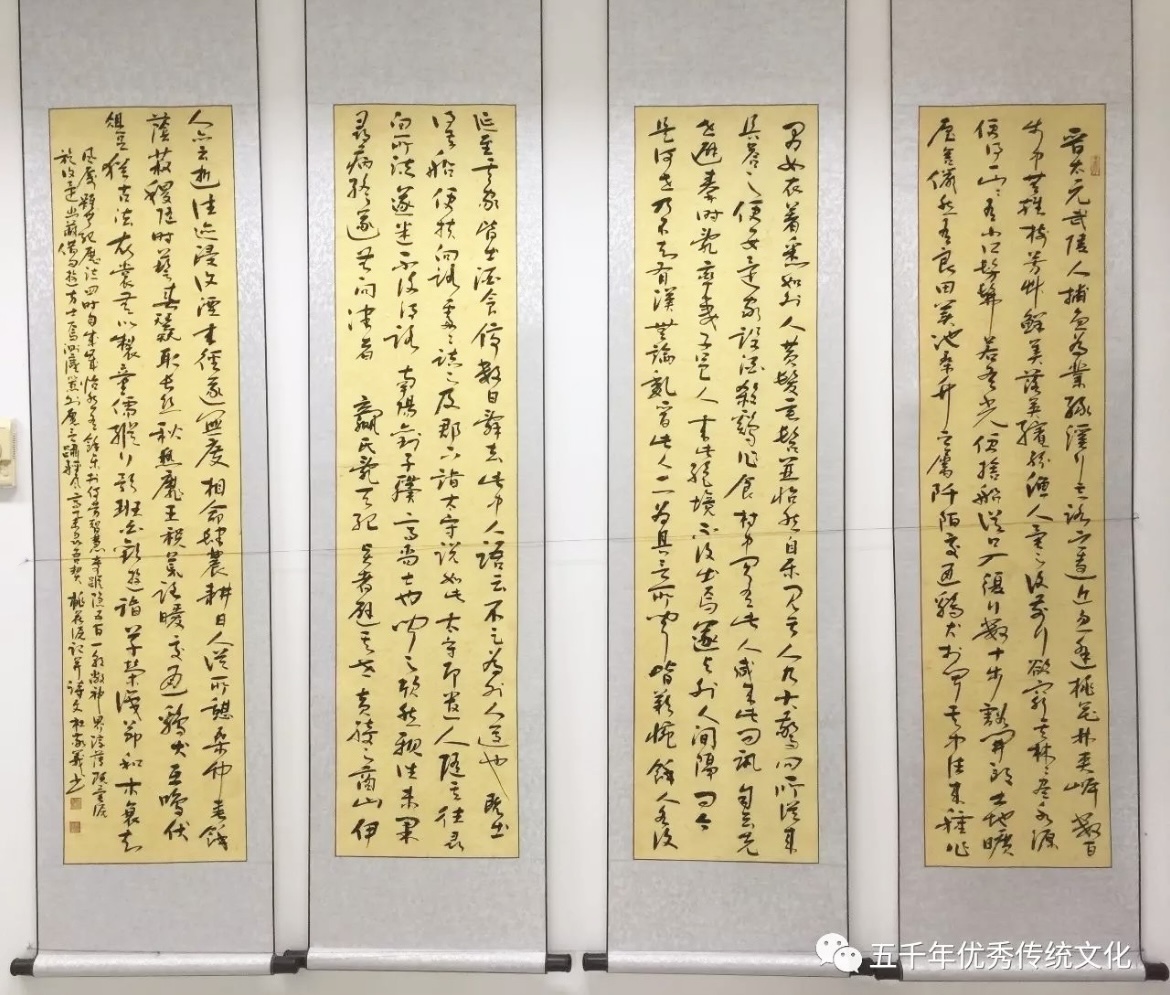 晋太元武陵人捕魚為業緣溪行忘路之遠近忽逢桃花林夾岸數百
步中無雜樹芳艸鮮美落英繽紛漁人異之復前行欲窮其林林盡水源
便得一山山有小口髣髴若有光便捨船從口入復行數十步豁開朗土地曠
屋舍儼然有良田美池桑竹之屬阡陌交通鷄犬相聞其中往來種作
男女衣着悉如外人黄髮垂髫並怡然自樂見漁人乃大驚問所從來
具答之便要還家設酒殺鷄作食村中聞有此人咸來此問訊自云先
世避秦時亂率妻子邑人來此絕境不復出焉遂與外人間隔問今
是何世乃不知有漢無論魏晉此人一一為具言所聞皆歎惋餘人各復
延至其家皆出酒食停數日辭去此中人語云不足為外人道也既出
得其船便扶向路處處誌之及郡下詣太守說如此太守即遣人隨其往尋
向所誌遂迷不復得路南陽劉子驥高尚士也聞之欣然親往未果
尋病終後遂無問津者 嬴氏亂天紀賢者避其世黃綺之商山伊
人亦云逝往迹浸復湮來徑遂蕪廢相命肆農耕日入從所憩桑竹垂餘
蔭菽稷隨時藝春蠶取長絲秋熟靡王稅荒路曖交通鷄犬互鳴吠
俎豆猶古法衣裳無新製童孺縱行歌班白歡遊詣草榮識節和木衰知
風厲雖無紀曆誌四時自成歲怡然有餘樂于何勞智慧奇蹤隱五百一朝敞神界淳薄既異源
旋復還幽蔽借問遊方士焉測塵囂外願言躡輕風高舉尋吾契 桃花源記并詩文
五千年优秀传统文化